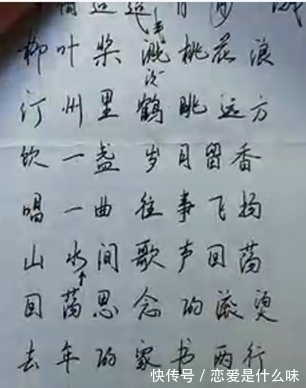 柳叶桨溅桃花浪
汀州里鹤眺远方
饮一盏岁月留香
唱一曲往事飞扬
山水间歌声回荡
回荡思念的滚烫
去年的家书两行
快传号 / 恋爱是什么味